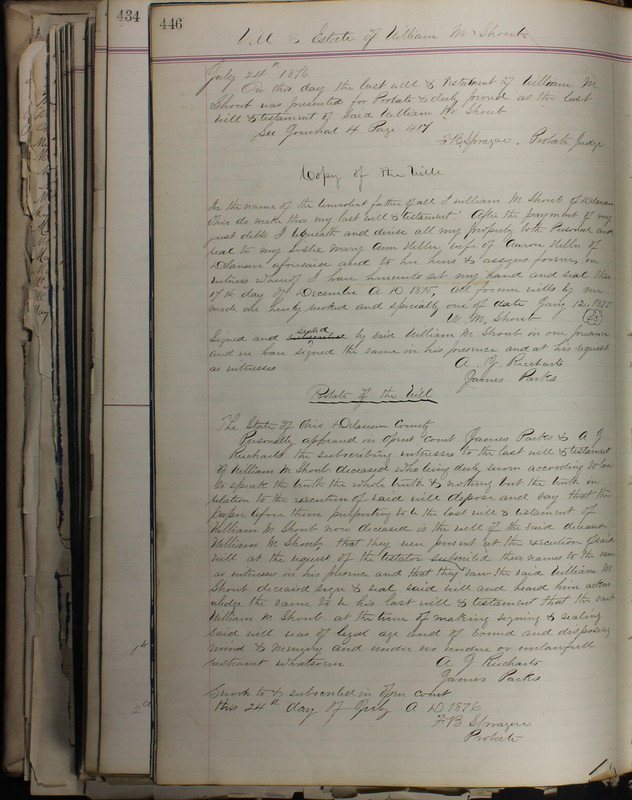 434
446
Will & Estate of William M. Shoub
July 24th 1876
On this day the last will & Testament of William M
Shoub was presented for Probate & duly proved as the last
will & testament of Said William M Shoub
See Journal 4 Page 417
F B Sprague. Probate Judge
Copy of the Will
In the name of the benevolent father of all I William M Shoub of Delaware
Ohio do make this my last will & testament. After the payment of my
just debts I bequeath and devise all my property both Personal and
real to my Mary Ann Heller, wife of Aaron Heller of
Delaware aforesaid and to her heirs & assigns forever, in
witness whereof I have hereunto set my hand and seal this
17th day of December A D 1875. All former wills by me
made are hereby revoked and specially one of date Jany 12. 1875
W. M. Shoub
Signed and sealed by said William M Shoub in our presence
and we have signed the same in his presence and at his request
as witnesses
A. J. Richards
James Parks
Probate of the Will
The State of Ohio Delaware County
Personally appeared in open Court James Parks & A J
Richards the subscribing witnesses to the last will & testament
of William M Shoub deceased who being duly sworn according to law
to speak the truth the whole truth & nothing but the truth in
relation to the execution of said will depose and say that the
paper before them purporting to be the last will & testament of
William M. Shoub now deceased is the will of the said deceased
William M. Shoub, that they were present at the execution of said
will at the request of the testator subscribed their names to the same
as witnesses in his presence and that they saw the said William M
Shoub deceased sign & seal said will and heard him acknow
ledge the same to be his last will & testament that the said
William M. Shoub at the time of making signing & sealing
said will was of legal age and of sound and disposing
mind & memory and under no undue or unlawfull
restraint whatsoever
A J Richards
James Parks
Sworn to & subscribed in open court
this 24th day of July A D 1876
F B Sprague
Probate